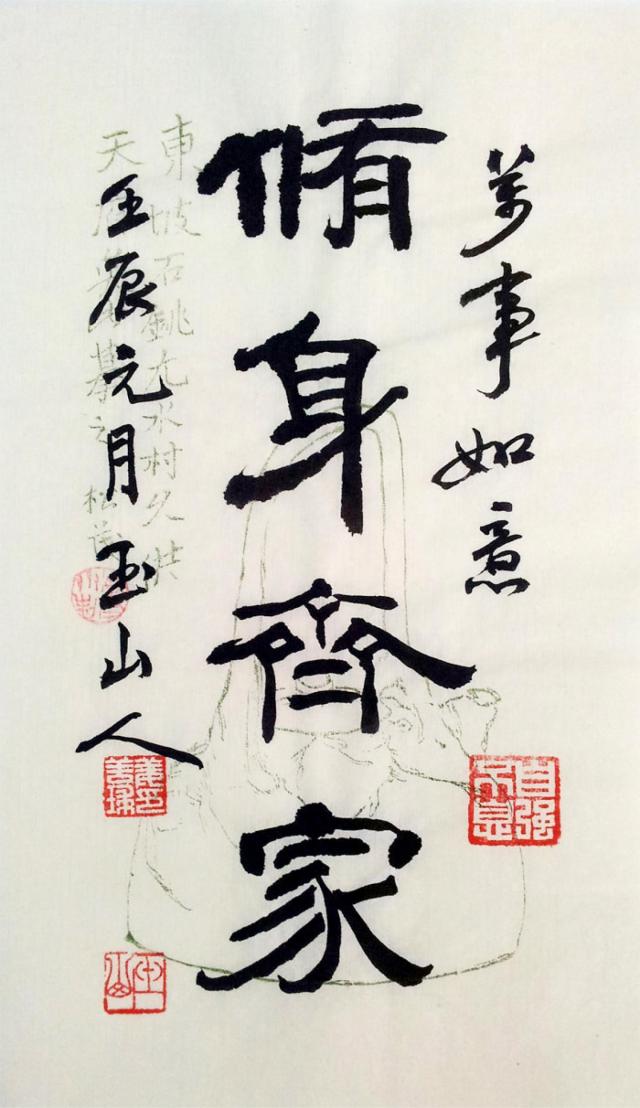 萬事如意
自强不息
脩身齊家
東坡石銚尤水村久
天
摹之
壬辰元月玉山人
玉山